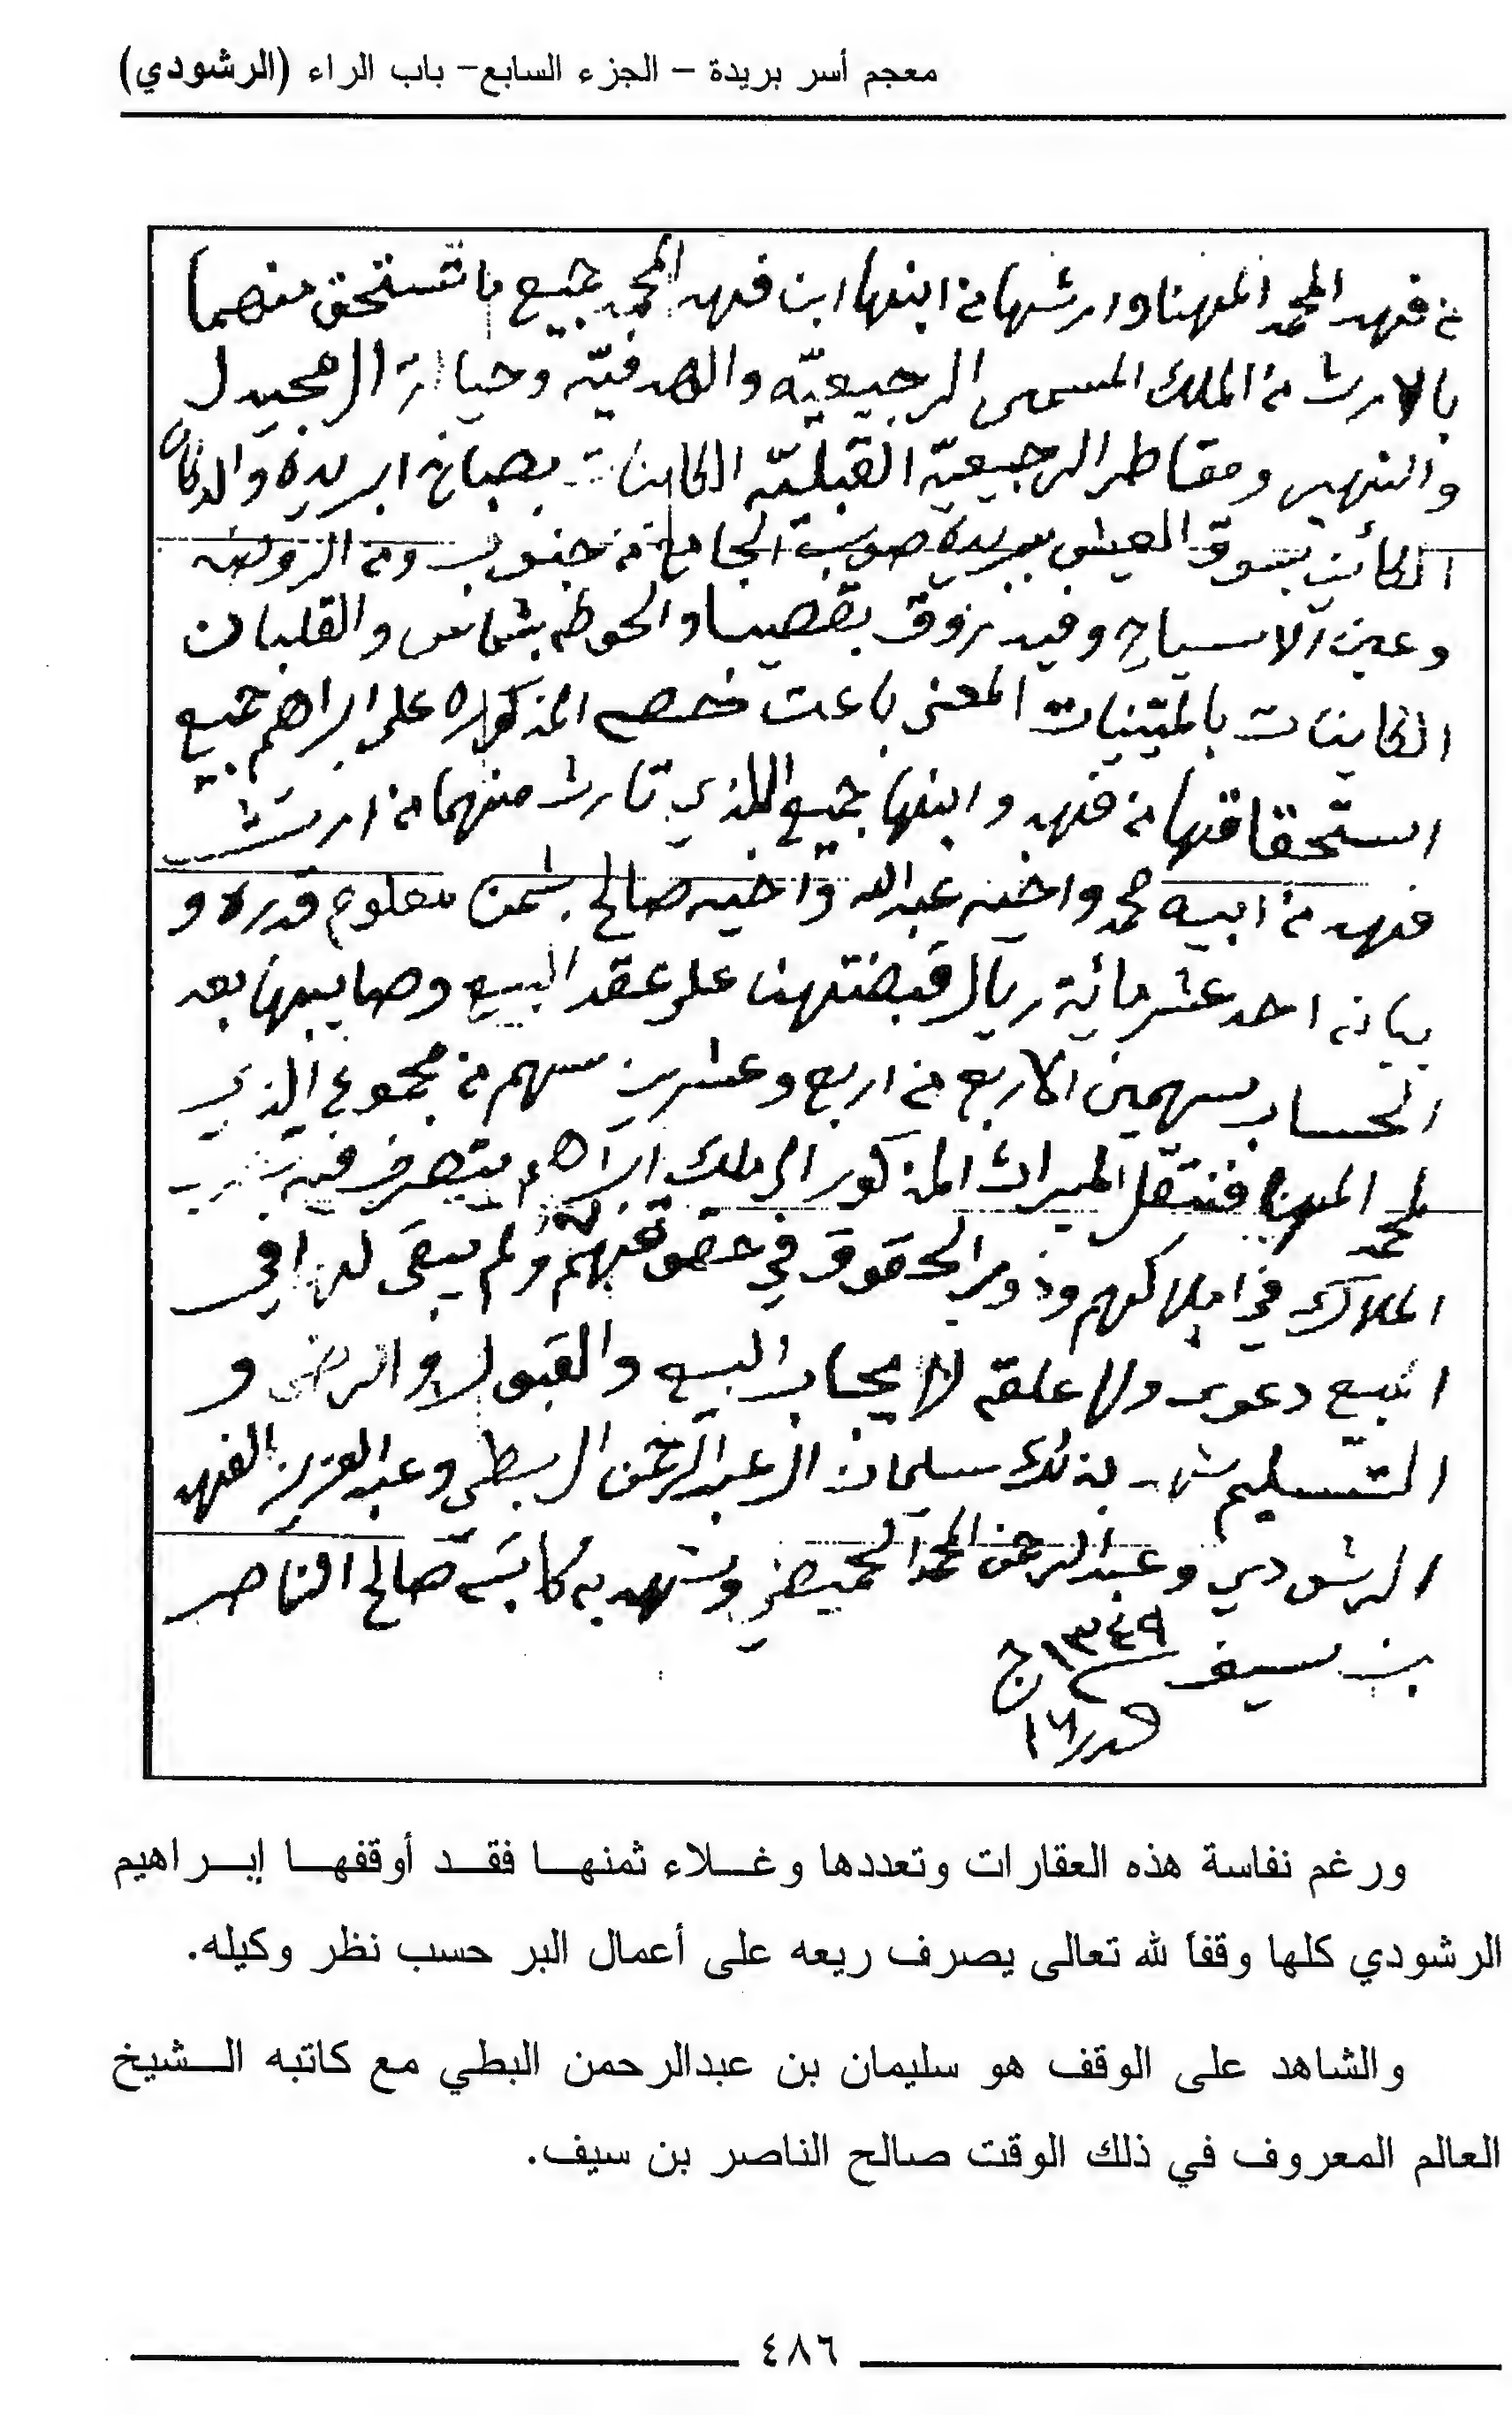 معجم أسر بريدة – الجزء السابع– باب الراء (الرشودي)
من فهد المحمد المهنا وارثها من ابنها ابن فهد المحمد جميع ما تستحق منهما
بالارث من الملك المسمى الرجيعيّه والصدفيّه وحيالة المجيدل
والنهير ومقاطر الرجيعيّة القبليّه الكاينات بصباخ ابريدة والدكان
الكائن بسوق العيش ببريدة صوب الجامع من جنوب ومن الروضه
وعين الاسياح وفيد زوق بقصيبا والحوطه بشماس والقلبان
الكاينات بالمتينيات المعنى باعت المذكوره على ابراهيم جميع
استحقاقها من فهد وابنها جميع اللذي تارث منهما من ارث
فهد من ابيه محمد واخيه عبدالله واخيه صالح بثمن معلوم قدره و
بيانه احد عشر مائة ريال قبضتهن على عقد البيع وصايبها بعد
الحساب سهمين الاربع من اربع وعشرين سهم من مجموع الذي
لمحمد المهنا فنتقل الميراث المذكور الى ملك ابراهيم يتصرف فيه
الملاك في املاكهم وذوي الحقوق في حقوقهم ولم يبقى لها في
المبيع دعوى ولا علقه لايجاب البيع والقبول والرضى و
التسليم شهد بذلك سليمان العبدالرحمن البطي وعبدالعزيز الفهد
الرشودي وعبدالرحمن المحمد الحميضي وشهد به كاتبه صالح الناصر
بن سيف ١٣٤٩ ج
١٦
ورغم نفاسة هذه العقارات وتعددها وغلاء ثمنها فقد أوقفها إبراهيم
الرشودي كلها وقفاً لله تعالى يصرف ريعه على أعمال البر حسب نظر وكيله.
والشاهد على الوقف هو سليمان بن عبدالرحمن البطي مع كاتبه الشيخ
العالم المعروف في ذلك الوقت صالح الناصر بن سيف.
٤٨٦